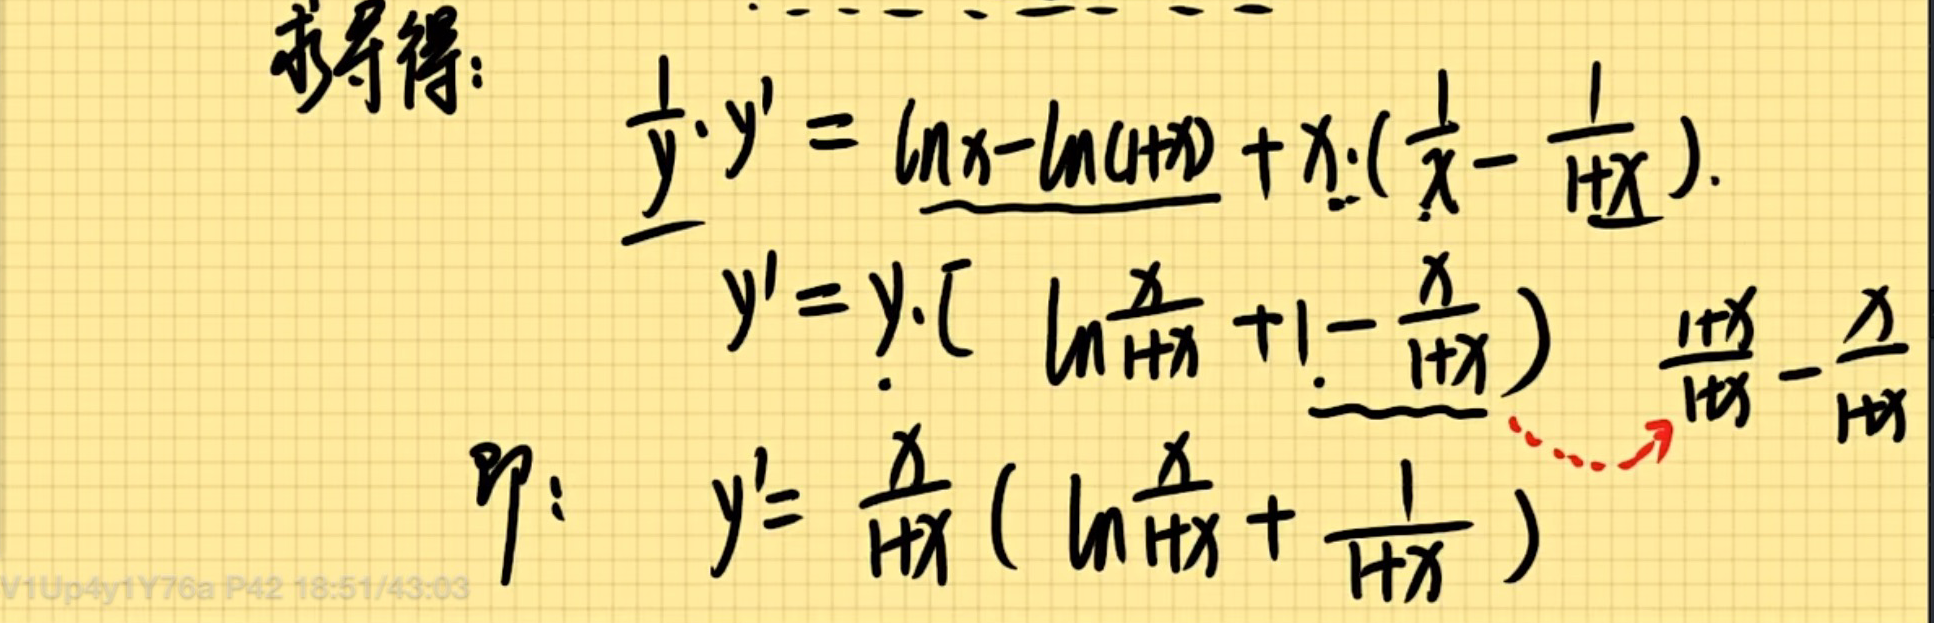 求导得:
1/y · y' = ln x - ln(1+x) + x·(1/x - 1/(1+x)).
y' = y·[ ln x/(1+x) + 1 - x/(1+x) ) (1+x)/(1+x) - x/(1+x)
即: y' = x/(1+x) ( ln x/(1+x) + 1/(1+x) )
V1Up4y1Y76a P42 18:51/43:03